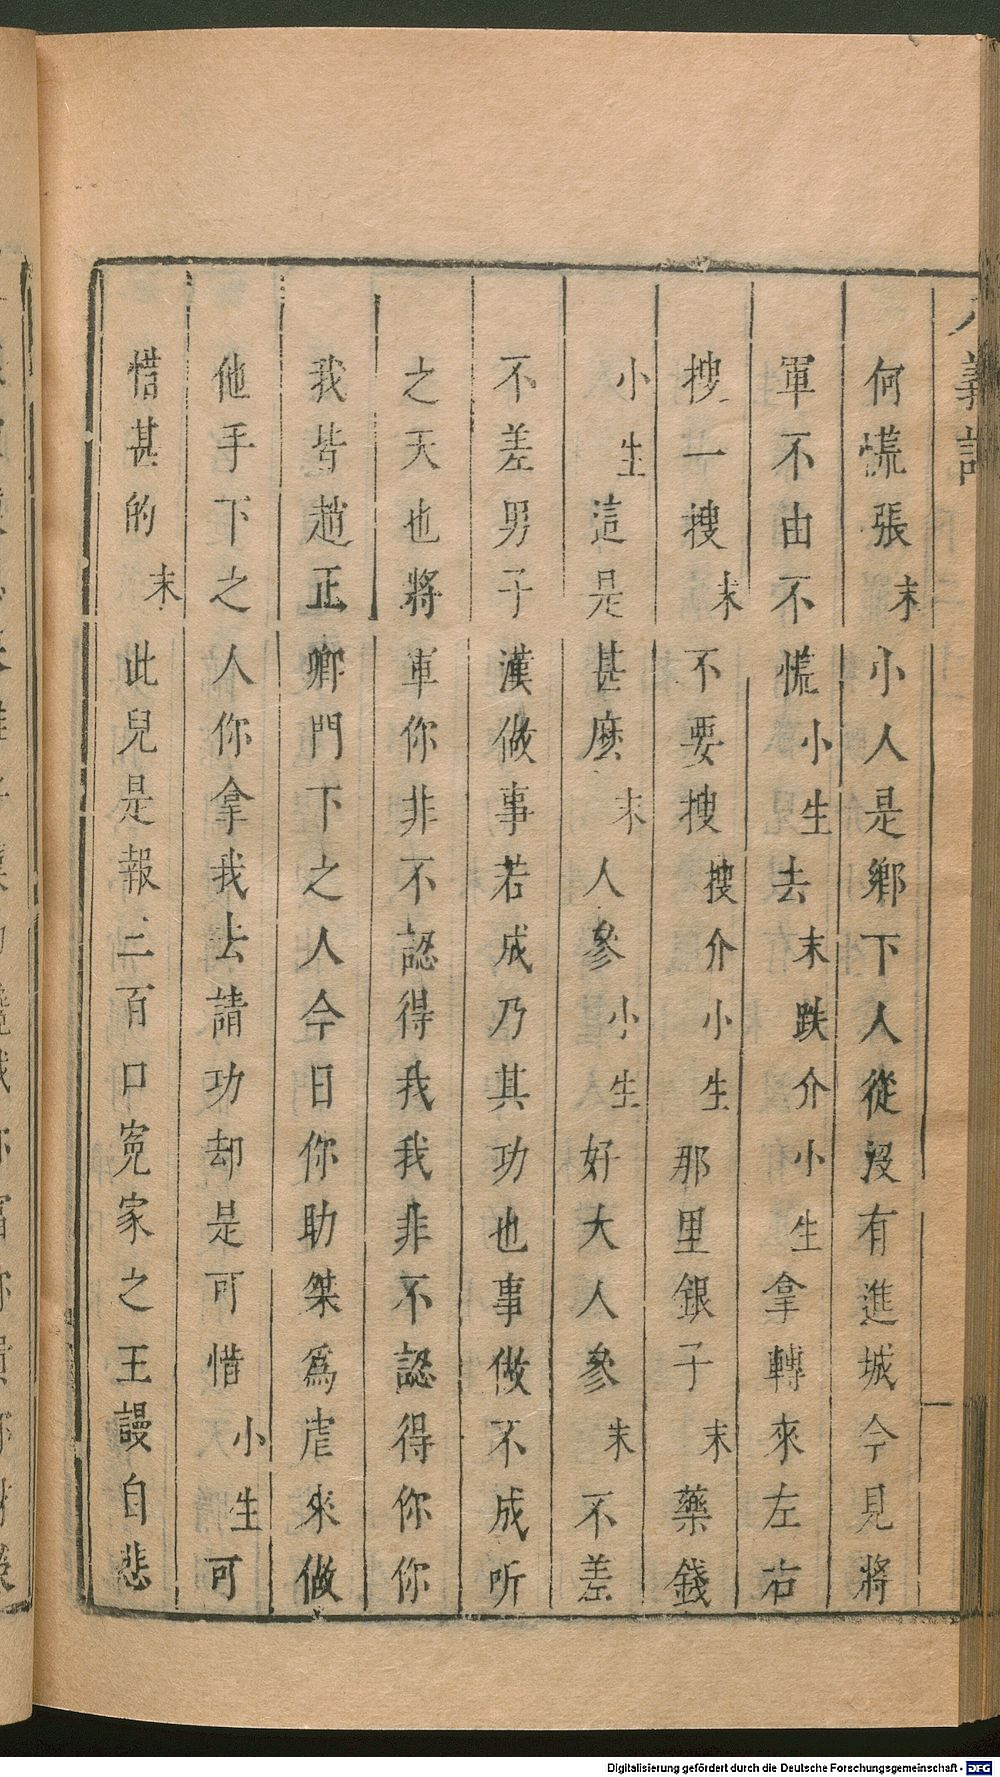 八義記
何慌張末小人是鄉下人從沒有進城今見將
軍不由不慌小生去末跌介小生拿轉來左右
搜一搜末不要搜搜介小生那里銀子末藥錢
小生這是甚麽末人參小生好大人參末不差
不差男子漢做事若成乃其功也事做不成听
之天也將軍你非不認得我我非不認得你你
我皆趙正卿門下之人今日你助桀爲虐來做
他手下之人你拿我去請功却是可惜小生可
惜甚的末此兒是報三百口冤家之王謾自悲
Digitalisierung gefördert durch die Deutsche Forschungsgemeinschaft - DFG